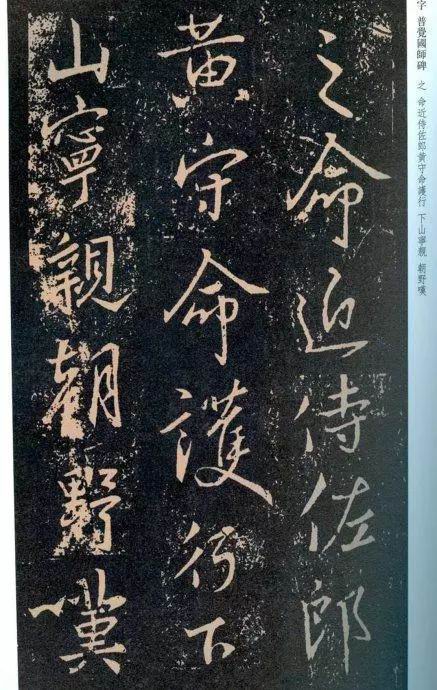 字 普覺國師碑 之 命近侍佐郎黃守命護行 下山寧親 朝野嘆
之命近侍佐郎
黃守命護行下
山寧親朝野嘆